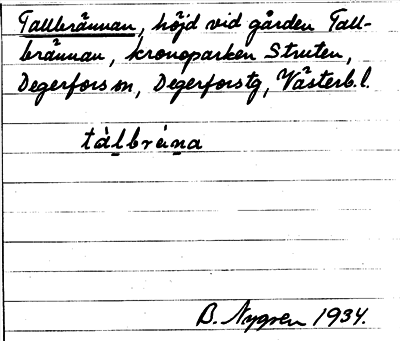 Tallbrännan, höjd vid gården Tall-
brännan, kronoparken Struten,
Degerfors sn, Degerforstg, Västerb. l.
tàlbräna
B. Nygren 1934.